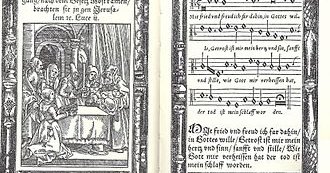 brachten sie zu gen Jerusa-
lem ꝛc. Luce ii.
Mit fried und freud ich far dahin, in Gottes wil-
le, Getrost ist mir mein hertz und sinn, sanfft
und stille, wie Gott mir verheissen hat,
der tod ist mein schlaff worden.
MIt fried und freud ich far dahin/
in Gottes wille/ Getrost ist mir mein
hertz und sinn/ sanfft und stille/ Wie
Gott mir verheissen hat der tod ist
mein schlaff worden.